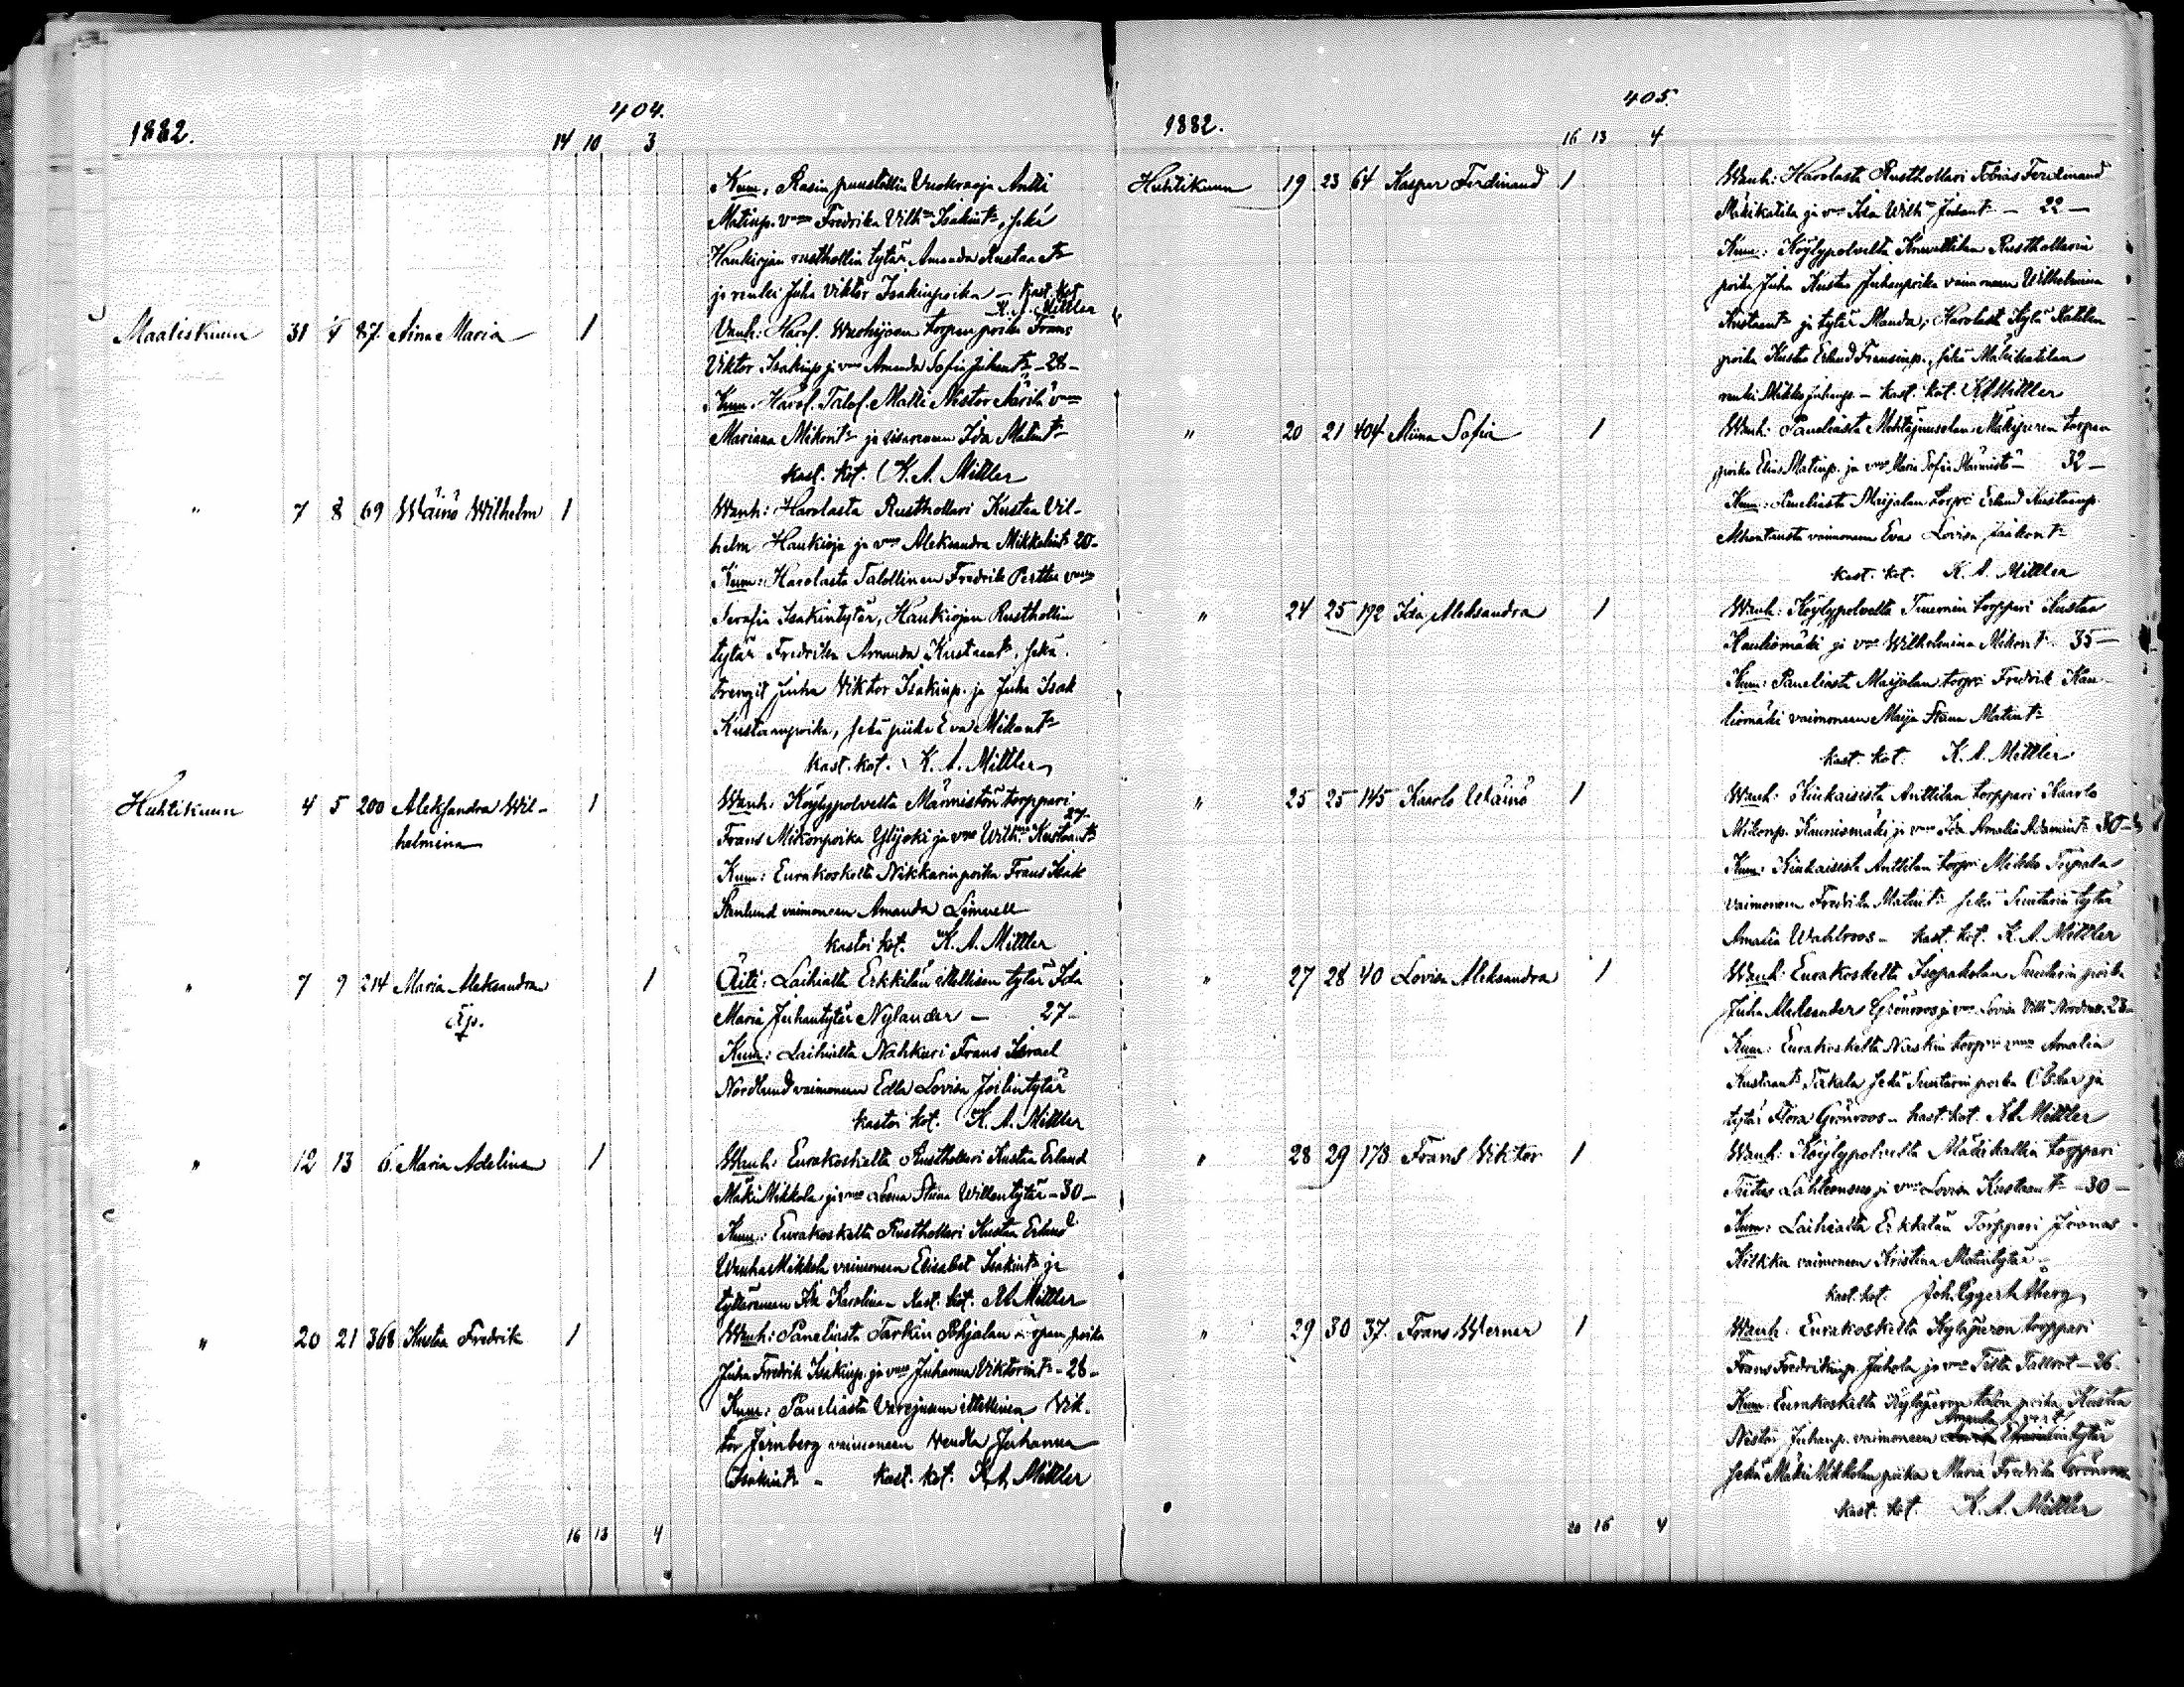 404.
1882.
14 10 3
Kum. Rasin puustellin Vuokraaja Antti
Matinp. vmo Fredrika Vilhna Isakint. sekä
Haukiojan rusthollin tytär Amanda Kustaant.
ja renki Juha Viktor Isakinpoika — Kast. kot.
K. A. Mittler
Maaliskuun 31 4 87. Aina Maria 1
Vanh: Harol. torpan poika Frans
Viktor Isakinp. ja vmo Amanda Sofia Juhant. - 28 -
Kum. Harol. Talol. Matti Nestor vmo
Mariana Mikont. ja sisarensa Ida Matint.
kast. kot. K. A. Mittler
" 7 8 69 Wäinö Wilhelm 1
Wanh: Harolasta Rusthollari Kustaa Vil-
helm Haukioja ja vmo Aleksandra Mikkelint. 20 -
Kum: Harolasta Talollinen Fredrik Perttu vmo
Serafia Isakintytär, Haukiojan Rusthollin
tytär Fredrika Amanda Kustaant., sekä
rengit Juha Viktor Isakinp. ja Juha Isak
Kustaanpoika, sekä piika Eva Mikont.
kast. kot. K. A. Mittler
Huhtikuun 4 5 200 Aleksandra Wil- 1
helmina
Wanh: Köylypolvelta Männistön torppari
27 -
Frans Mikonpoika Ylijoki ja vmo Wilhna Kustaant.
Kum: Eurakoskelta Nikkarin poika Frans Isak
Stenlund vaimoneen Amanda
kastoi kot. K. A. Mittler
" 7 9 214 Maria Aleksandra 1
Äp.
Äiti: Laihialta Erkkilän itsellisen tytär Ida
Maria Juhantytär Nylander — 27 -
Kum: Laihialta Nahkuri Frans Israel
Nordlund vaimoneen Edla Lovisa Joelintytär
kastoi kot. K. A. Mittler
" 12 13 6. Maria Adelina 1
Wanh: Eurakoskelta Rusthollari Kustaa Erland
Mäki Mikkola ja vmo Leena Stiina Willentytär - 30 -
Kum: Eurakoskelta Rusthollari Kustaa Erland
Wanha Mikkola vaimoneen Elisabet Isakint. ja
tyttärensä Ida Karolina - Kast. kot. K. A. Mittler
" 20 21 368 Kustaa Fredrik 1
Wanh: Paneliasta Tarkin Pohjalan poika
Juha Fredrik Isakinp. ja vmo Juhanna Viktorint. - 28 -
Kum: Paneliasta itsellinen Vik-
tor Jernberg vaimoneen Wendla Juhanna
Isakint. - kast. kot. K. A. Mittler
16 13 4
405.
1882.
16 13 4
Huhtikuun 19 23 64 Kasper Ferdinand 1
Wanh: Harolasta Rusthollari Tobias Ferdinand
Mäkikatila ja vmo Ida Wilhna Juhant. — 22 —
Kum: Köylypolvelta Rusthollarin
poika Juha Kustaa Juhanpoika vaimoneen Wilhelmina
Kustaant. ja tytär Manda, Harolasta Kylä Katilan
poika Kustaa Erland Fransinp., sekä Mäkikatilan
renki Mikko Juhanp. - kast. kot. K A Mittler
" 20 21 404 Miina Sofia 1
Wanh: Paneliasta Mäkijuren torpan
poika Elias Matinp. ja vmo Maria Sofia Männistö - 32 -
Kum: Paneliasta Maijalan torpri Erland Kustaanp.
vaimoneen Eva Lovisa Jaakont.
kast. kot. K. A. Mittler
" 24 25 192 Ida Aleksandra 1
Wanh: Köylypolvelta Tuomen torppari Kustaa
Kauliomäki ja vmo Wilhelmina Mikont. 35 —
Kum: Paneliasta Maijalan torpri Fredrik Kau-
liomäki vaimoneen Maija Stina Matint.
kast. kot. K. A. Mittler
" 25 25 145 Kaarlo Wäinö 1
Wanh: Kiukaisista Anttilan torppari Kaarlo
Mikonp. Kaunismäki ja vmo Ida Amalia Adamint. 30 -
Kum: Kiukaisista Anttilan torpri Mikko Tupala
vaimoneen Fredrika Matint. sekä Suntarin tytär
Amalia Wahlroos - kast. kot. K. A. Mittler
" 27 28 40 Lovisa Aleksandra 1
Wanh: Eurakoskelta Isopaholan Suutarin poika
Juha Aleksander Grönroos ja vmo Lovisa Vilhna 23 -
Kum: Eurakoskelta torprin vmo Amalia
Kustaant. Pirkala sekä Suutarin poika Oskar ja
tytär Flora Grönroos - kast. kot. K A Mittler
" 28 29 178 Frans Viktor 1
Wanh: Köylypolvelta Mäkikallia torppari
Tiitus Lähteensuu ja vmo Lovisa Kustaant. - 30 —
Kum: Laihialta Erkkilän Torppari Joonas
Kilkku vaimoneen Kristina Matintytär -
kast. kot. Joh. Eggert Åberg
" 29 30 37. Frans Werner 1
Wanh: Eurakoskelta Kyläjuron torppari
Frans Fredrikinp. Juhola ja vmo Tilta - 26.
Kum: Eurakoskelta Kyläjuron talon poika Kustaa
Amanda
Nestor Juhanp. vaimoneen
sekä Mäki Mikkolan piika Maria Fredrika Grönroos
kast. kot. K. A. Mittler
20 16 4